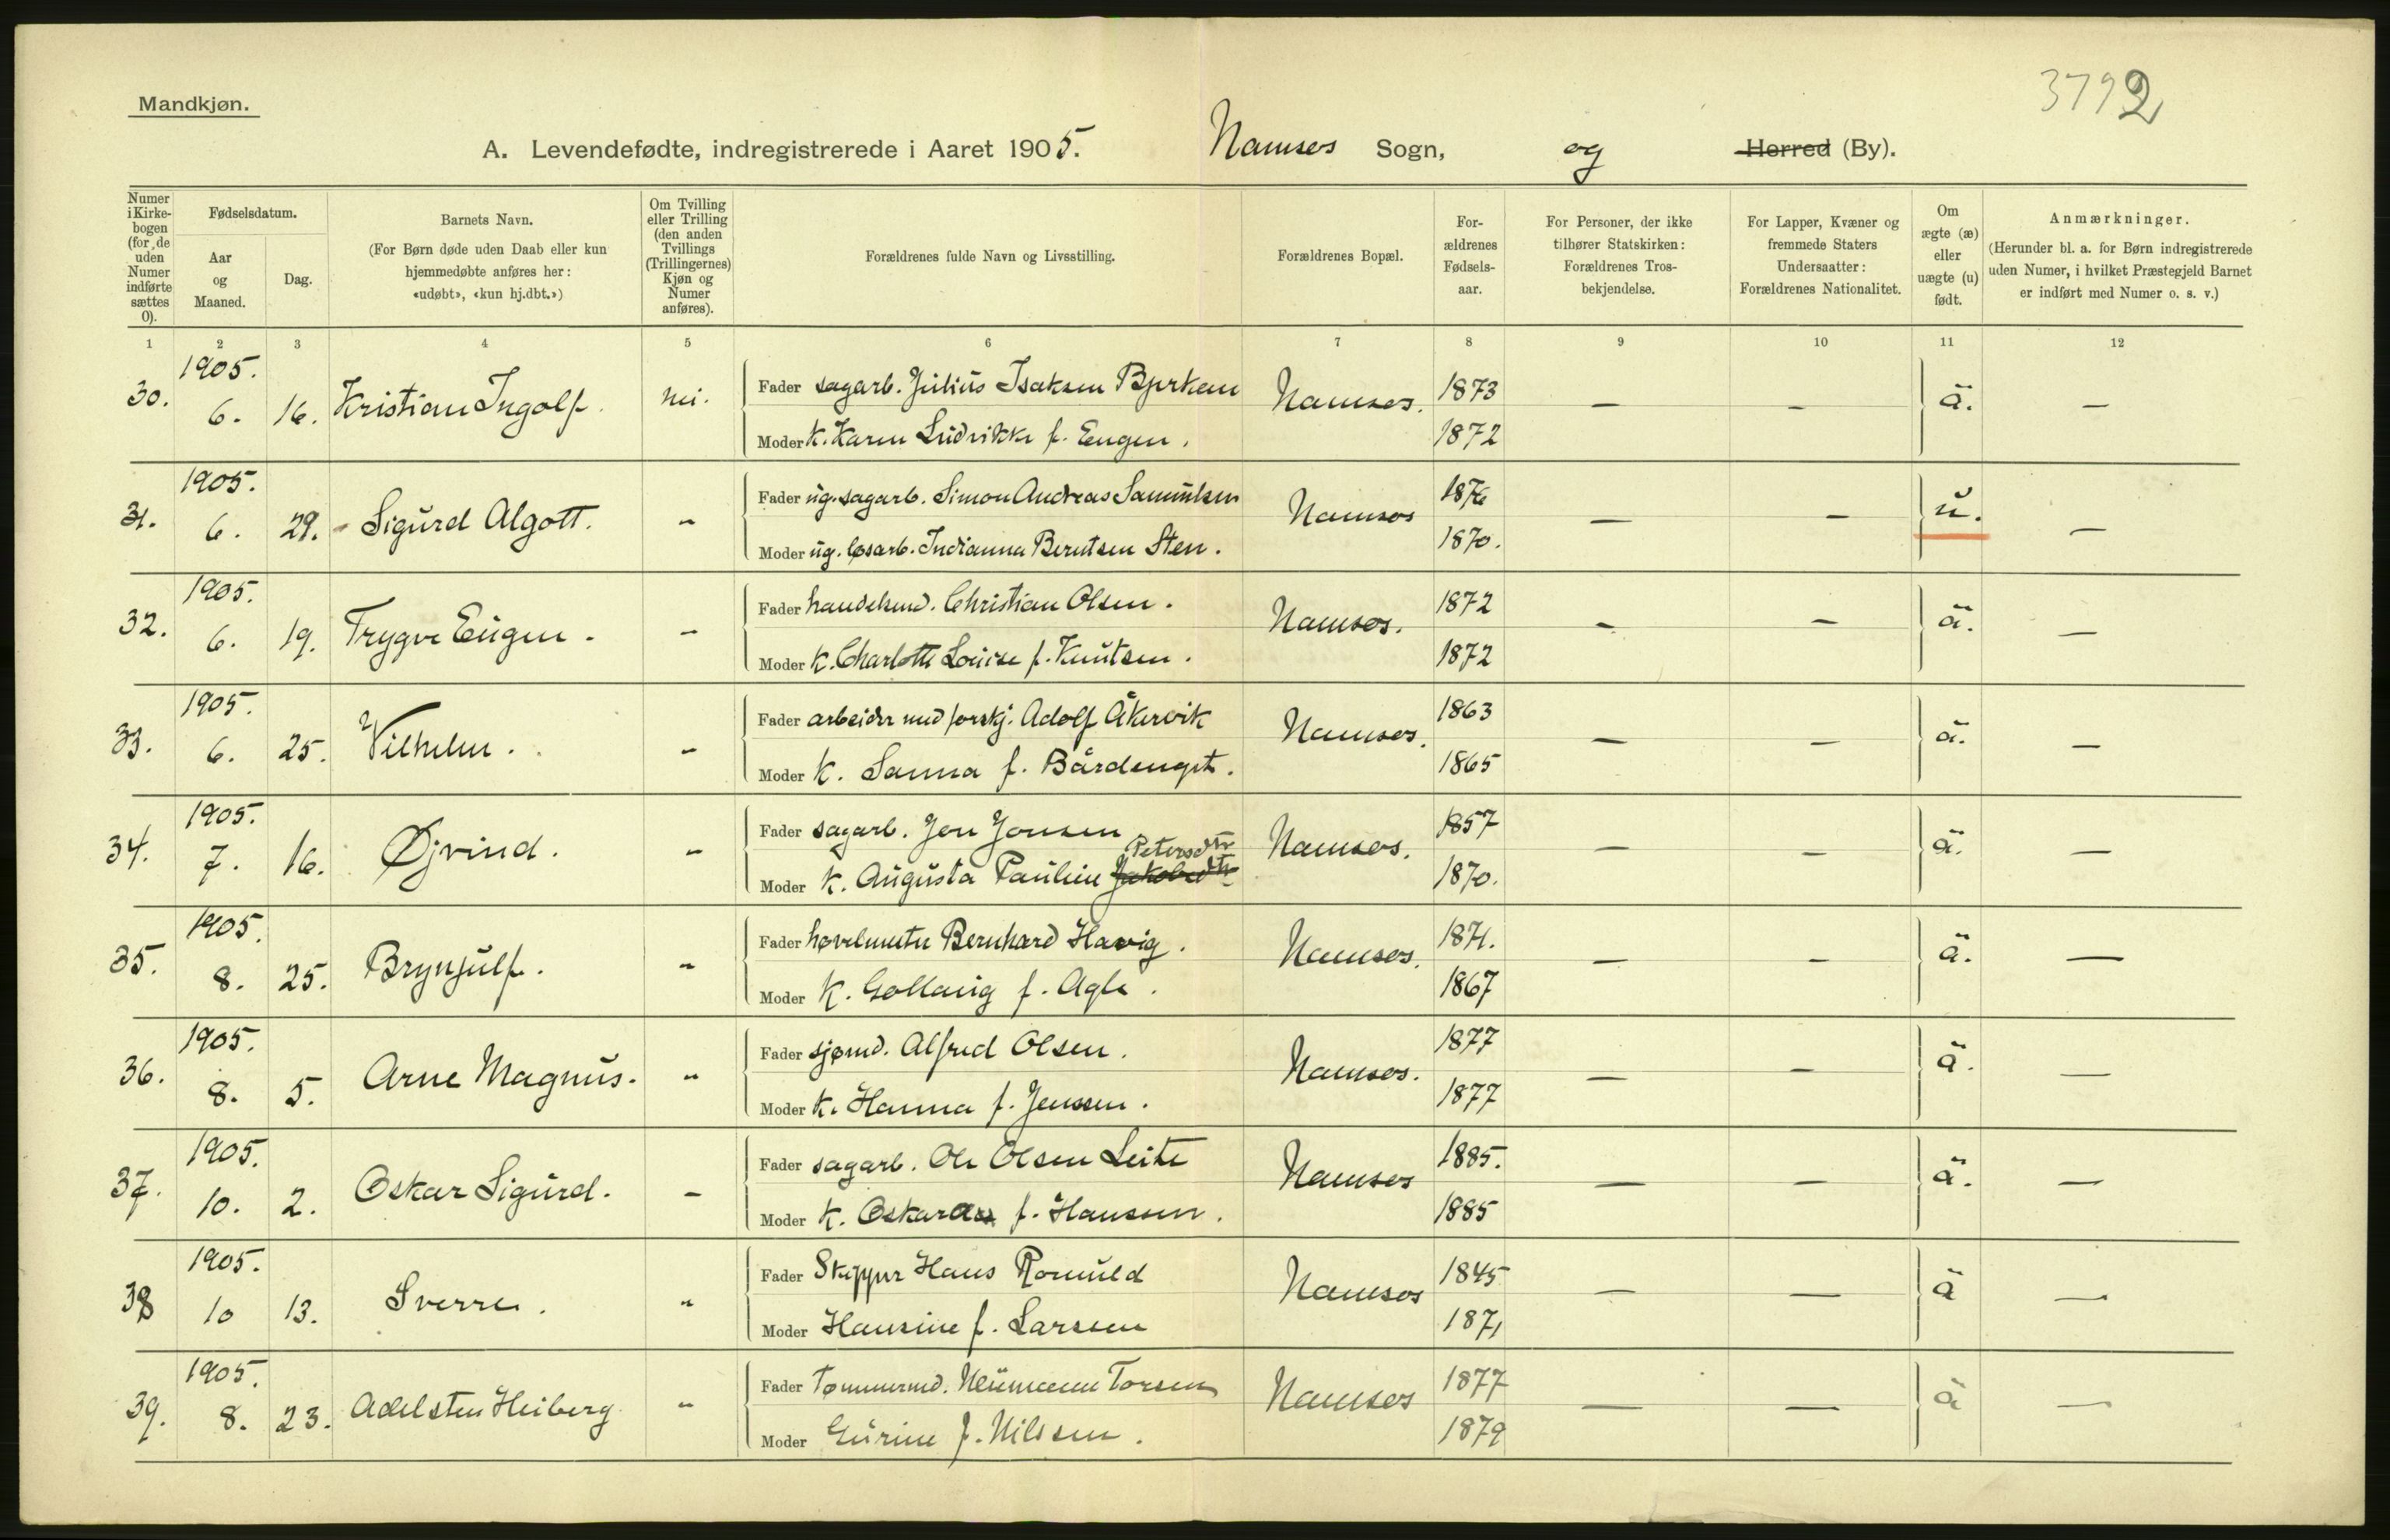 3792
Mandkjøn.
A. Levendefødte, indregistrerede i Aaret 1905. Namsos Sogn, og Herred (By).
Numer i Kirkebogen (for de uden Numer indførte sættes 0).
Fødselsdatum.
Aar og Maaned.
Dag.
Barnets Navn.
(For Børn døde uden Daab eller kun hjemmedøbte anføres her: «udøbt», «kun hj.dbt.»)
Om Tvilling eller Trilling (den anden Tvillings (Trillingernes) Kjøn og Numer anføres).
Forældrenes fulde Navn og Livsstilling.
Forældrenes Bopæl.
For-ældrenes Fødsels-aar.
For Personer, der ikke tilhører Statskirken: Forældrenes Tros-bekjendelse.
For Lapper, Kvæner og fremmede Staters Undersaatter: Forældrenes Nationalitet.
Om ægte (æ) eller uægte (u) født.
Anmærkninger.
(Herunder bl. a. for Børn indregistrerede uden Numer, i hvilket Præstegjeld Barnet er indført med Numer o. s. v.)
1 2 3 4 5 6 7 8 9 10 11 12
30. 1905. 6. 16. Kristian Ingolf. nei. Fader sagarb. Julius Isaksen Bjørkan Namsos. 1873 — — ä. —
Moder k. Karen Ludvikke f. Engen. 1872
31. 1905. 6. 29. Sigurd Algott. " Fader ug. sagarb. Simon Andreas Samuelsen Namsos 1876 — — u. —
Moder ug. løsarb. Indianna Berntsen Sten. 1870.
32. 1905. 6. 19. Trygve Eugen. " Fader handelsmd. Christian Olsen. Namsos. 1872 — — ä. —
Moder k. Charlotte Louise f. Knutsen. 1872
33. 1905. 6. 25. Vilhelm. " Fader arbeider med forskj. Adolf Åkervik Namsos. 1863 — — ä. —
Moder k. Sanna f. 1865
34. 1905. 7. 16. Øjvind. " Fader sagarb. Jon Jonsen Namsos. 1857 — — ä. —
Petersdtr
Moder k. Augusta Pauline Jakobsdtr 1870.
35. 1905. 8. 25. Brynjulf. " Fader høvelmester Bernhard Havig. Namsos. 1871. — — ä. —
Moder k. Gollaug f. Agle. 1867
36. 1905. 8. 5. Arne Magnus. " Fader sjømd. Alfred Olsen. Namsos. 1877 — — ä. —
Moder k. Hanna f. Jenssen. 1877
37. 1905. 10. 2. Oskar Sigurd. " Fader sagarb. Ole Olsen Leite Namsos 1885. — — ä. —
Moder k. Oskara f. Hanssen. 1885
38 1905. 10 13. Sverre. " Fader Skipper Hans Romuld Namsos 1845 — — ä —
Moder Hansine f. Larssen 1871
39. 1905. 8. 23. Adelsten Heiberg " Fader Tømmermd. Neumann Torsen Namsos 1877 — — ä —
Moder Gurine f. Nilssen. 1879